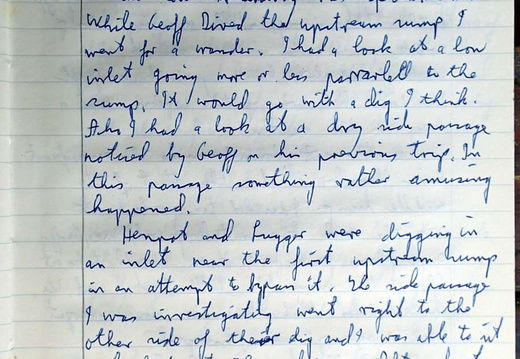 While Geoff Dived the upstream sump I
went for a wander. I had a look at a low
inlet going more or less parrarlell to the
sump. It would go with a dig I think.
Also I had a look at a dry side passage
noticed by Geoff on his previous trip. In
this passage something rather amusing
happened.
Henpot and Lugger were digging in
an inlet near the first upstream sump
in an attempt to bypass it. The side passage
I was investigating went right to the
other side of their dig and I was able to sit